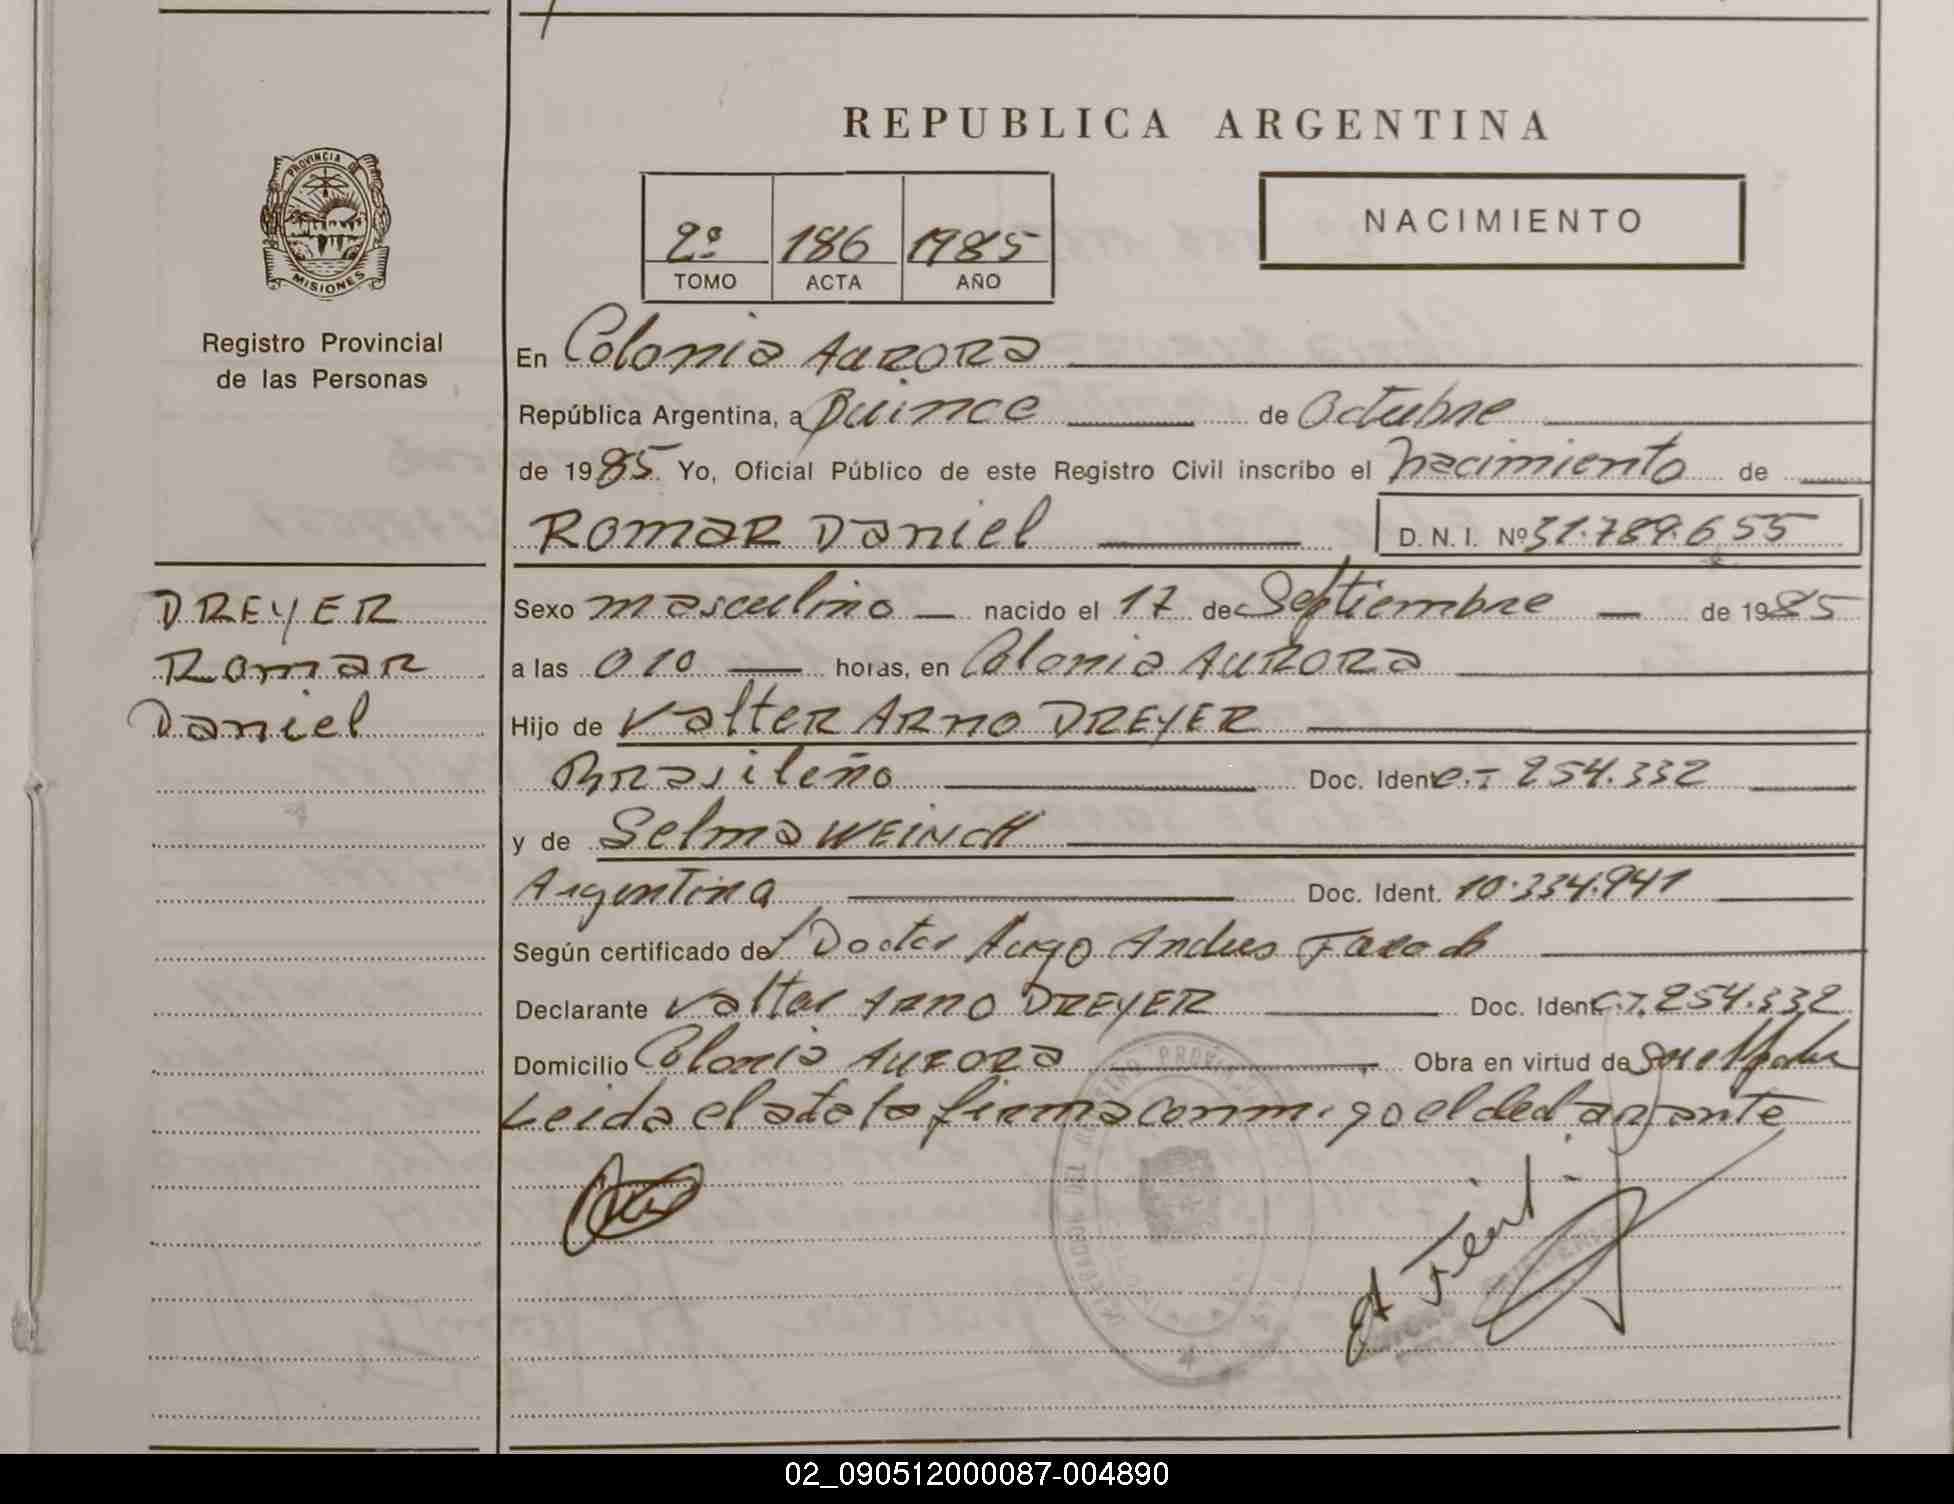 REPUBLICA ARGENTINA
PROVINCIA DE
MISIONES
2º 186 1985
TOMO ACTA AÑO
NACIMIENTO
Registro Provincial
de las Personas
En Colonia Aurora
República Argentina, a Quince de Octubre
de 1985. Yo, Oficial Público de este Registro Civil inscribo el nacimiento de
Romar Daniel D. N. I. Nº 31.789.655
DREYER
Romar
Daniel
Sexo masculino nacido el 17 de Septiembre de 1985
a las 0 10 horas, en Colonia Aurora
Hijo de Valter Arno DREYER
Brasileño Doc. Ident. C.I. 254.332
y de Selma WEINCH
Argentina Doc. Ident. 10.334.941
Según certificado de Doctor Hugo Andres
Declarante Valter Arno DREYER Doc. Ident. C.I. 254.332
Domicilio Colonia Aurora Obra en virtud de
Leida el acta la firma conmigo el declarante
02_090512000087-004890